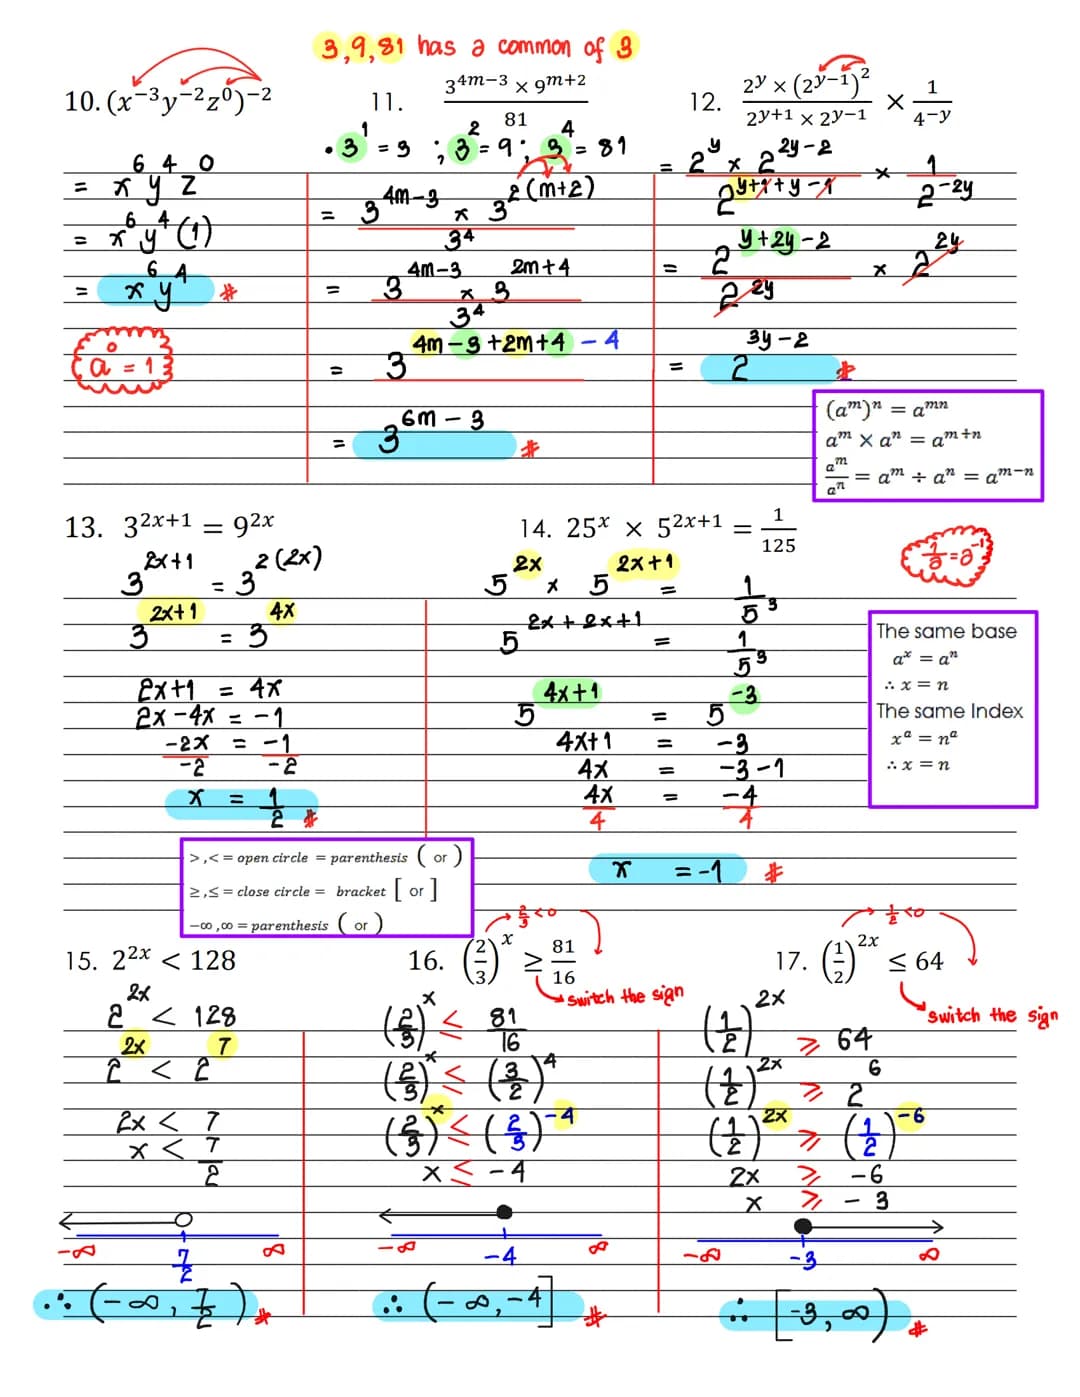 3,9,81 has a common of 3
10. (x⁻³y⁻²z⁰)⁻²
= x⁶ y⁴ z⁰
= x⁶ y⁴ (1)
= x⁶ y⁴ #
a⁰ = 1
11. (3⁴ᵐ⁻³ × 9ᵐ⁺²) / 81
• 3¹ = 3 ; 3² = 9 ; 3⁴ = 81
= (3^(4m-3) × 3^(2(m+2))) / 3⁴
= (3^(4m-3) × 3^(2m+4)) / 3⁴
= 3^(4m-3+2m+4-4)
= 3^(6m-3) #
12. (2^y × (2^(y-1))²) / (2^(y+1) × 2^(y-1)) × 1 / 4^(-y)
= (2^y × 2^(2y-2)) / 2^(y+1+y-1) × 1 / 2^(-2y)
= 2^(y+2y-2) / 2^(2y) × 2^(2y)
= 2^(3y-2) #
(aᵐ)ⁿ = aᵐⁿ
aᵐ × aⁿ = aᵐ⁺ⁿ
aᵐ/aⁿ = aᵐ ÷ aⁿ = aᵐ⁻ⁿ
13. 3^(2x+1) = 9^(2x)
3^(2x+1) = 3^(2(2x))
3^(2x+1) = 3^(4x)
2x+1 = 4x
2x-4x = -1
-2x/-2 = -1/-2
x = 1/2 #
14. 25^x × 5^(2x+1) = 1/125
5^(2x) × 5^(2x+1) = 1/5³
5^(2x+2x+1) = 1/5³
5^(4x+1) = 5^(-3)
4x+1 = -3
4x = -3-1
4x/4 = -4/4
x = -1 #
1/a = a⁻¹
The same base
aˣ = aⁿ
∴ x = n
The same Index
xᵃ = nᵃ
∴ x = n
>,< = open circle = parenthesis ( or )
≥,≤ = close circle = bracket [ or ]
-∞,∞ = parenthesis ( or )
15. 2^(2x) < 128
2^(2x) < 128
2^(2x) < 2^7
2x < 7
x < 7/2
-∞ 7/2 ∞
∴ (-∞, 7/2) #
2/3 < 0
16. (2/3)^x ≥ 81/16
switch the sign
(2/3)^x ≤ 81/16
(2/3)^x ≤ (3/2)^4
(2/3)^x ≤ (2/3)^-4
x ≤ -4
-∞ -4 ∞
∴ (-∞, -4] #
1/2 < 0
17. (1/2)^(2x) ≤ 64
switch the sign
(1/2)^(2x) ≥ 64
(1/2)^(2x) ≥ 2^6
(1/2)^(2x) ≥ (1/2)^-6
2x ≥ -6
x ≥ -3
-∞ -3 ∞
∴ [-3, ∞) #